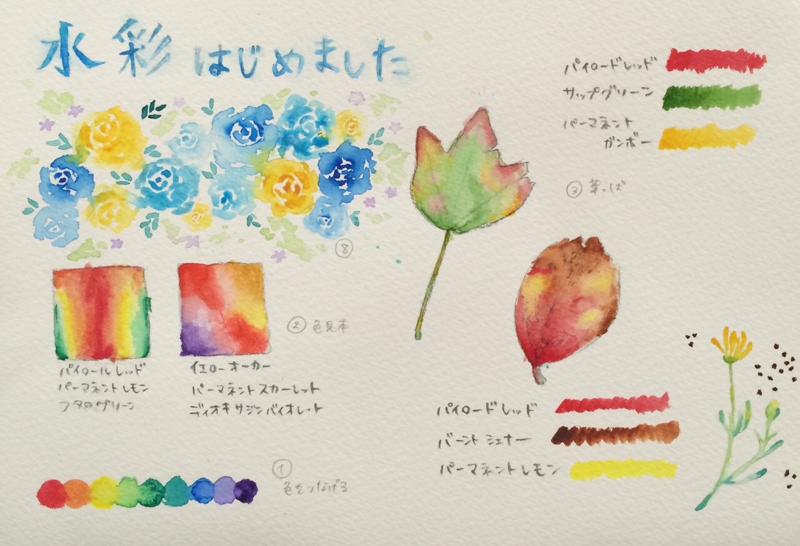 水彩 はじめました
⑧
パイロールレッド
パーマネントレモン
フタログリーン
イエローオーカー
パーマネントスカーレット
ディオキサジンバイオレット
② 色見本
①
色をつなげる
パイロードレッド
サップグリーン
パーマネント
ガンボー
③ 葉っぱ
パイロードレッド
バーントシェナー
パーマネントレモン